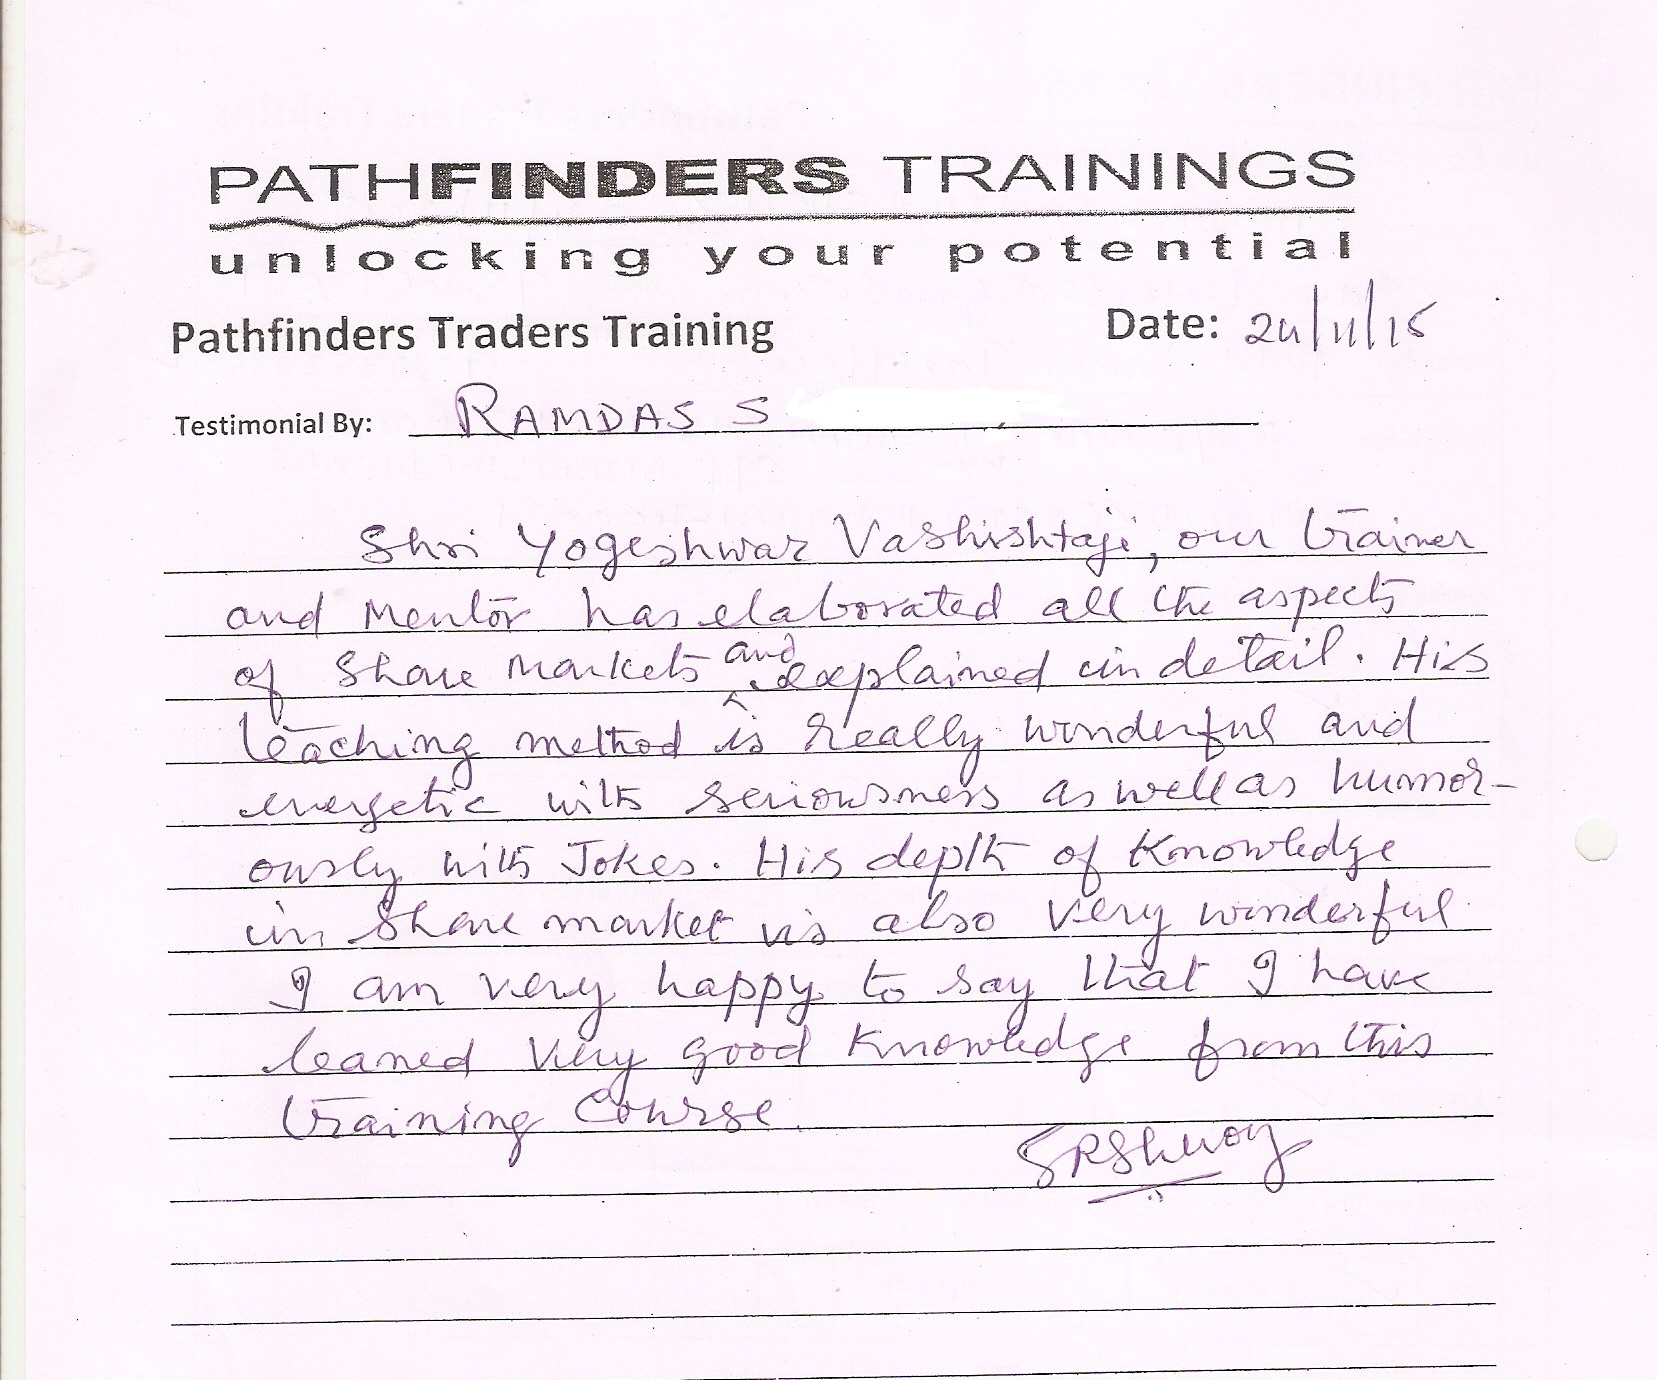 PATHFINDERS TRAININGS
unlocking your potential
Pathfinders Traders Training Date: 24/11/15
Testimonial By: RAMDAS S
Shri Yogeshwar Vashishtaji, our trainer
and Mentor has elaborated all the aspects
of Share Markets and explained in detail. His
teaching method is really wonderful and
energetic with seriousness as well as humor-
ously with Jokes. His depth of Knowledge
in Share market is also very wonderful
I am very happy to say that I have
leaned very good Knowledge from this
training Course.